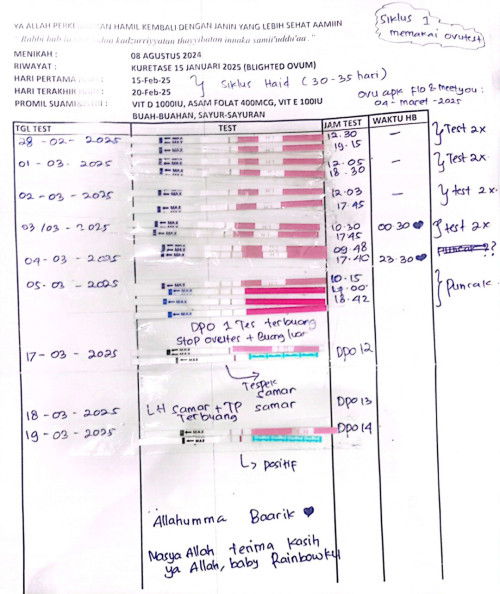 Siklus 1
memakai ovutest
HAMIL KEMBALI DENGAN JANIN YANG LEBIH SEHAT AAMIIN
MENIKAH : 08 AGUSTUS 2024
RIWAYAT : KURETASE 15 JANUARI 2025 (BLIGHTED OVUM)
HARI PERTAMA 15-Feb-25
HARI TERAKHIR 20-Feb-25
Siklus Haid (30-35 hari)
Ovu apk flo & meetyou :
04 - maret - 2025
PROMIL SUAMI VIT D 1000IU, ASAM FOLAT 400MCG, VIT E 100IU
BUAH-BUAHAN, SAYUR-SAYURAN
TGL TEST TEST JAM TEST WAKTU HB
28 - 02 - 2025 12.30 — Test 2x
19.15
01 - 03 - 2025 12.05 — Test 2x
18.30
02 - 03 - 2025 12.03 — test 2x
17.45
03/03 - 2025 10.30 00.30 test 2x
17.45
04 - 03 - 2025 09.48 ??
17.40 23.30
05 - 03 - 2025 10.15
17.00 Puncak
18.42
DPO 1 Tes terbuang
Stop ovutes + Buang luar
17 - 03 - 2025 DPO 12
Tespek
samar
18 - 03 - 2025 LH Samar + TP samar DPO 13
Terbuang
19 - 03 - 2025 DPO 14
positif
Allahumma Baarik
Masya Allah terima kasih
ya Allah, baby Rainbowku